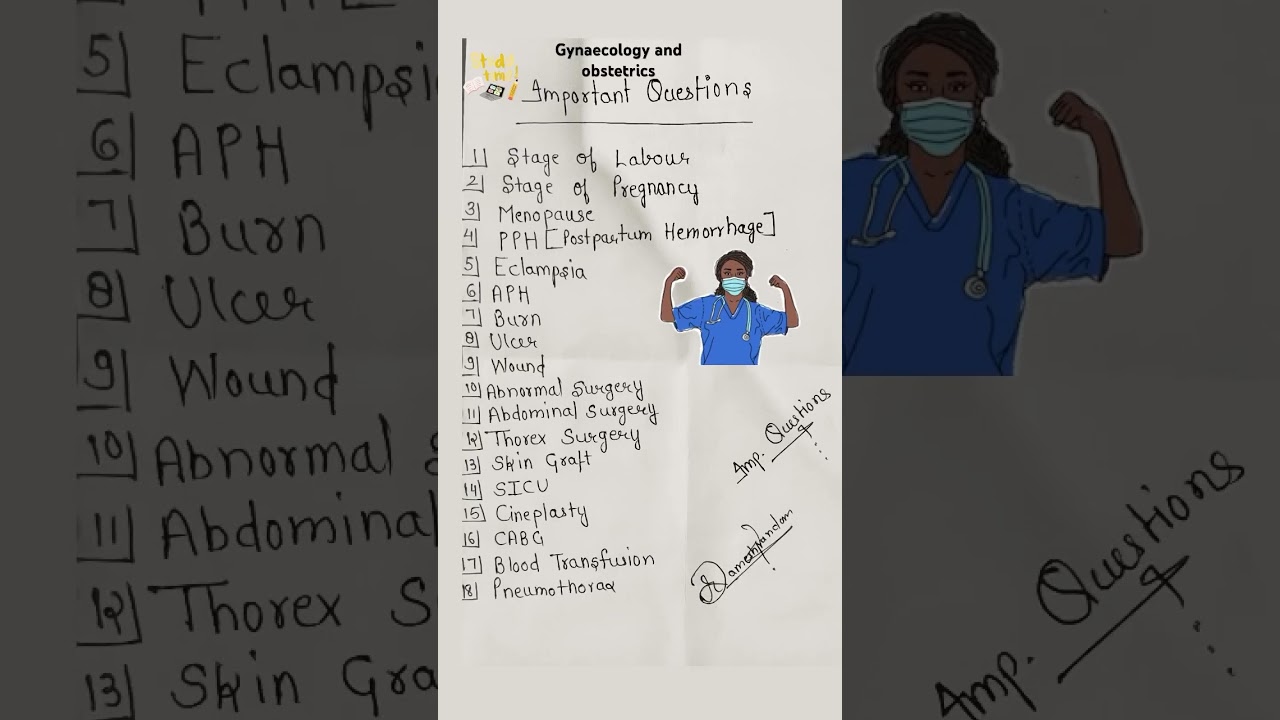 Gynaecology and
obstetrics
Important Questions
1 Stage of Labour
2 Stage of Pregnancy
3 Menopause
4 PPH [Postpartum Hemorrhage]
5 Eclampsia
6 APH
7 Burn
8 Ulcer
9 Wound
10 Abnormal Surgery
11 Abdominal Surgery
12 Thorex Surgery
13 Skin Graft
14 SICU
15 Cineplasty
16 CABG
17 Blood Transfusion
18 Pneumothorax
Imp. Questions
5 Eclampsi
6 APH
7 Burn
8 Ulcer
9 Wound
10 Abnormal S
11 Abdominal
12 Thorex S
13 Skin Gra
Imp. Questions